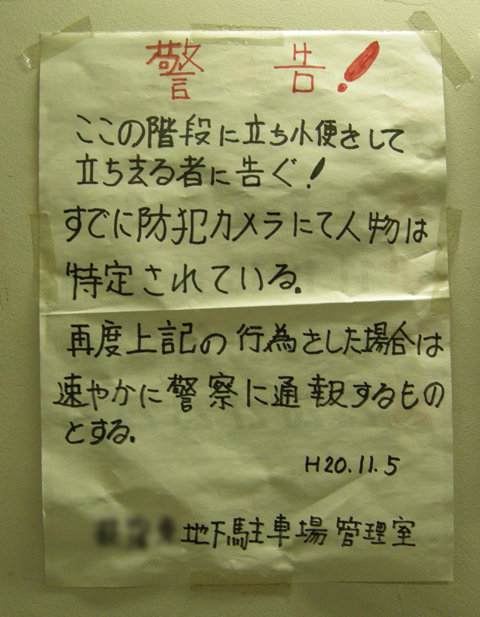 警告!
ここの階段に立ち小便をして
立ち去る者に告ぐ!
すでに防犯カメラにて人物は
特定されている.
再度上記の行為をした場合は
速やかに警察に通報するもの
とする.
H20.11.5
地下駐車場管理室